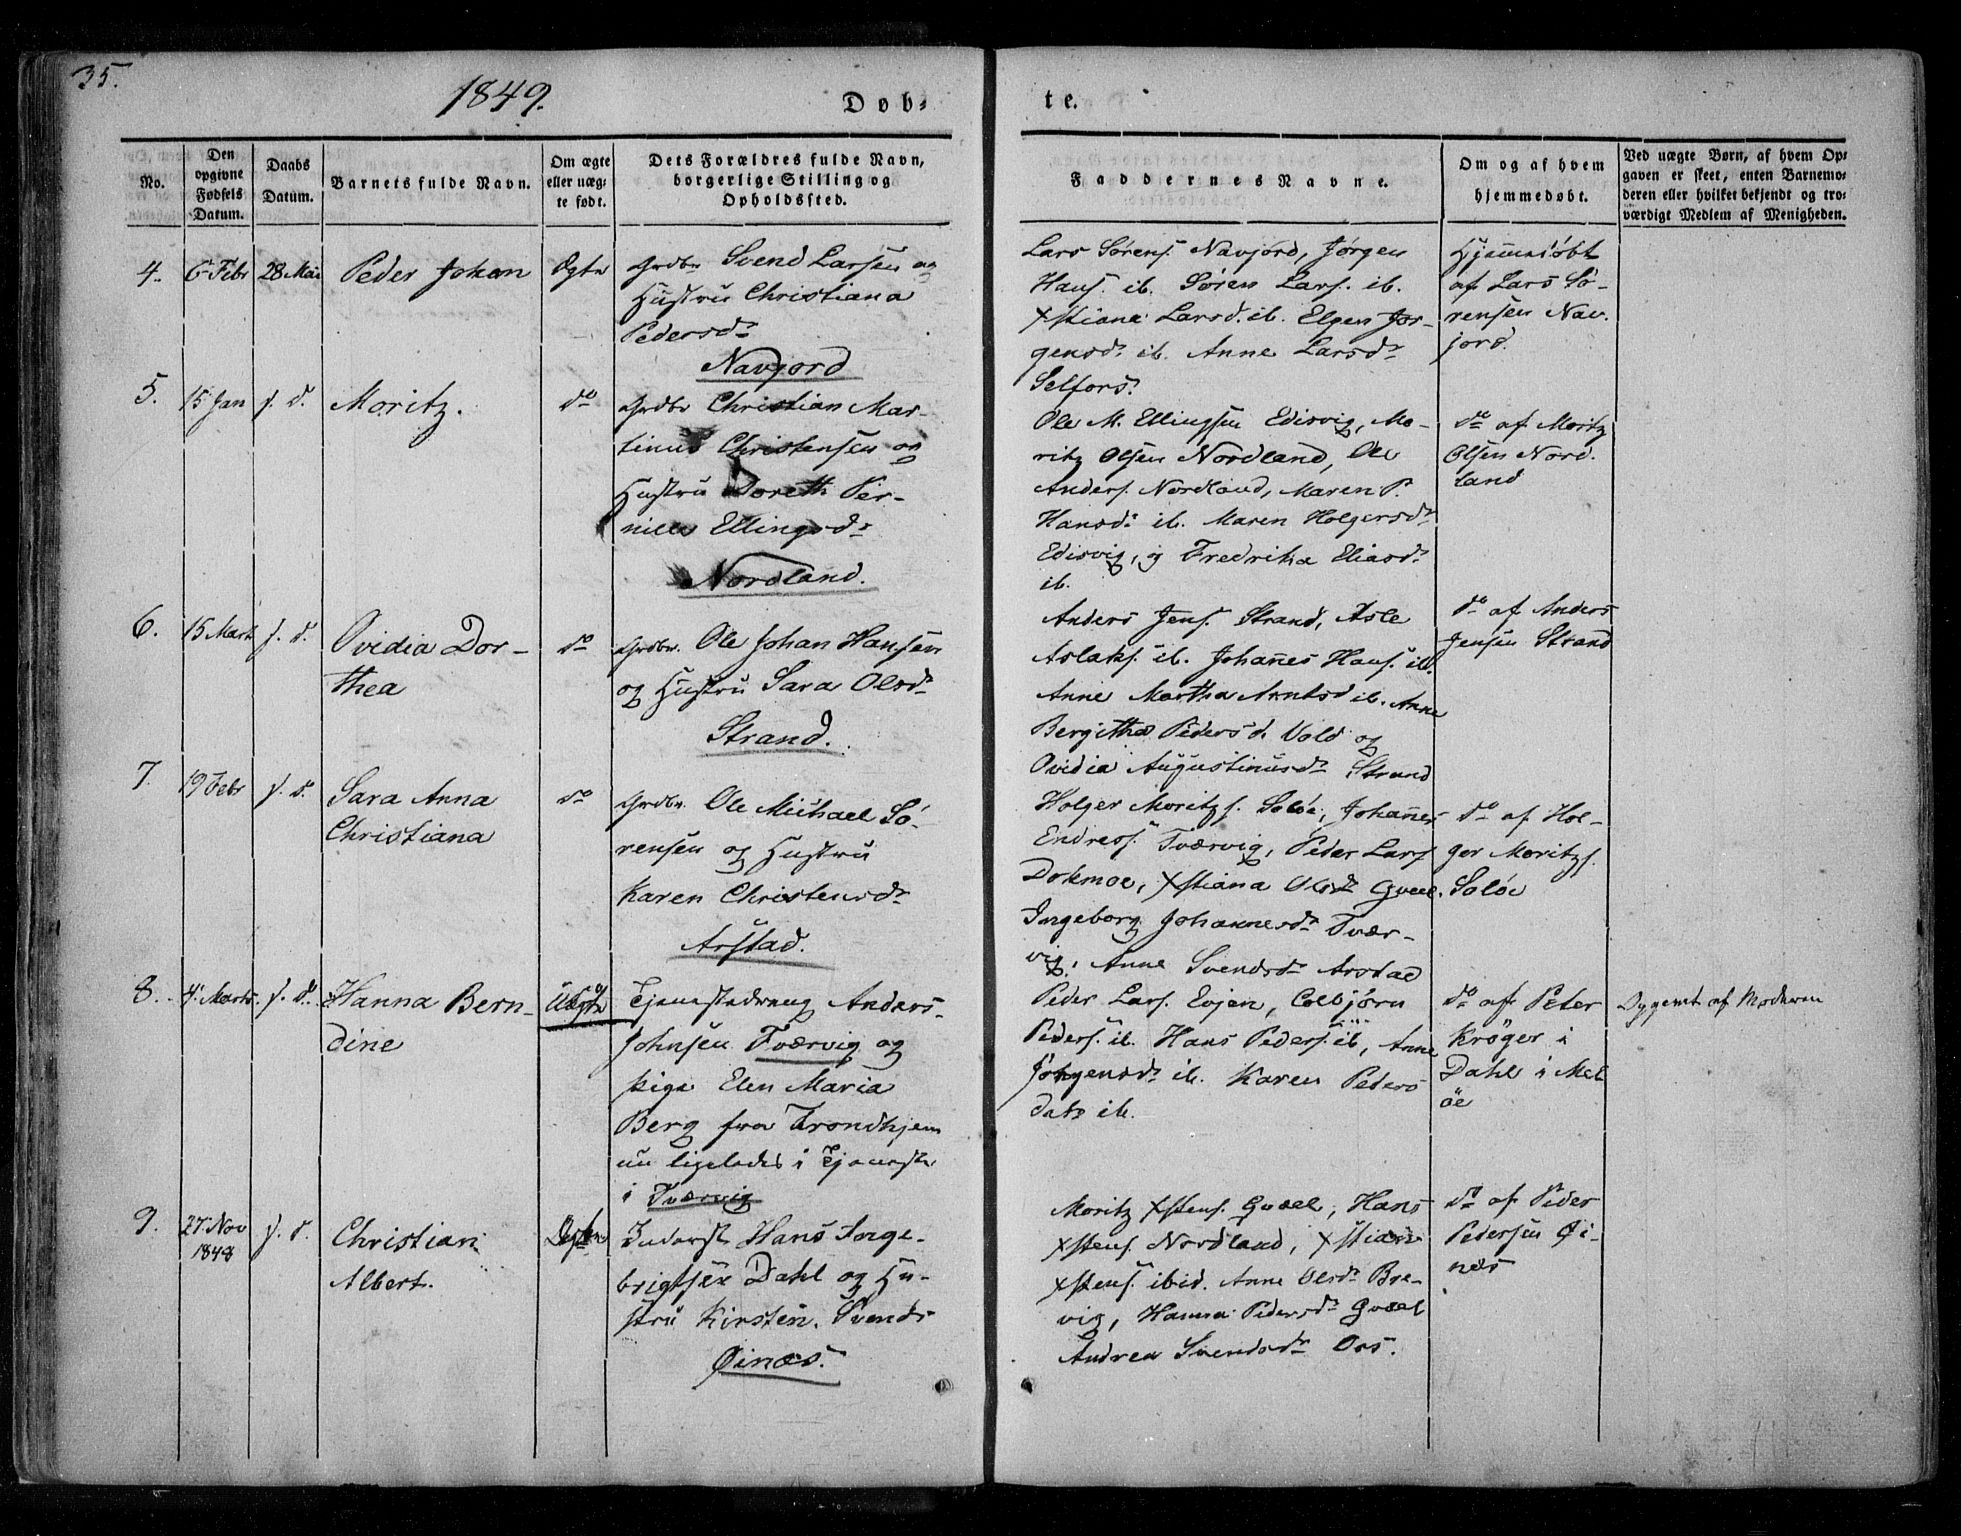 35.
1849.
Døb-
te.
No.
Den opgivne Fødsels Datum.
Daabs Datum.
Barnets fulde Navn.
Om ægte eller uægte født.
Dets Forældres fulde Navn, borgerlige Stilling og Opholdssted.
Faddernes Navne.
Om og af hvem hjemmedøbt.
Ved uægte Børn, af hvem Opgaven er skeet, enten Barnemoderen eller hvilket bekjendt og troværdigt Medlem af Menigheden.
4. 6 Febr 28 Mai Peder Johan Ægte
Grdbr Svend Larsen og
Hustru Christiana
Pedersdr
Navjord
Lars Sørens. Navjord, Jørgen
Hans. ib. Søren Lars. ib.
Xstiana Larsd. ib. Elgen Jør-
gensdr ib. Anne Larsdr
Selfors.
Hjemmedøbt
af Lars Sø-
rensen Nav-
jord.
5. 15 Jan s. d. Moritz. do
Grdbr Christian Mar-
tinus Christensen og
Hustru Doreth Per-
nille Ellingsdr
Nordland.
Ole M. Ellingsen Edisvig, Mo-
ritz Olsen Nordland, Ole
Anders. Nordland, Maren P.
Hansd. ib. Maren Holgersdr
Edisvig, og Fredrika Eliasdr
ib.
do af Moritz
Olsen Nord-
land
6. 15 Marts s. d. Ovidia Dor-
thea
do
Grdbr. Ole Johan Hansen
og Hustru Sara Olsdr
Strand.
Anders Jens. Strand, Asle
Aslaks. ib. Johañes Hans. ib.
Anne Martha Arntsd ib. Anne
Bergitha Pedersd. Vold og
Ovidia Augustinusdr Strand
do af Anders
Jensen Strand
7. 19 Febr s. d. Sara Anna
Christiana
do
Grdbr. Ole Michael Sø-
rensen og Hustru
Karen Christensdr
Arstad.
Holger Moritzs. Soløe, Johañes
Endres. Tværvig, Peder Lars.
Dokmoe, Xstiana Olsdr Gvæl.
Ingeborg Johannesdr Tvær-
vig, Anne Svendsdr Arstad
do af Hol-
ger Moritzs.
Soløe
8. 4 Marts s. d. Hanna Bern-
dine
Uægte
Tjenestedreng Anders
Johnsen Tværvig og
Pige Elen Maria
Berg fra Trondhjem
nu ligeledes i Tjeneste
i Tværvig
Peder Lars. Evjen, Colbjørn
Peders. ib. Hans Peders. ib, Anne
Jørgensdr ib. Karen Peders
datr ib.
do af Peter
Krøger i
Dahl i Mel
øe
Opgivet af Moderen
9. 27 Nov
1848
s. d. Christian
Albert.
Inderst Hans Inge-
brigtsen Dahl og Hu-
stru Kirsten Svends
Øinæs.
Moritz Xstens. Gvæl, Hans
Xstens. Nordland, Xstian
Xstens. ibid. Anne Olsdr Bre-
vig, Hanna Pedersdr Gvæl
Andrea Svendsdr Oos.
do af Peder
Pedersen Øi-
næs